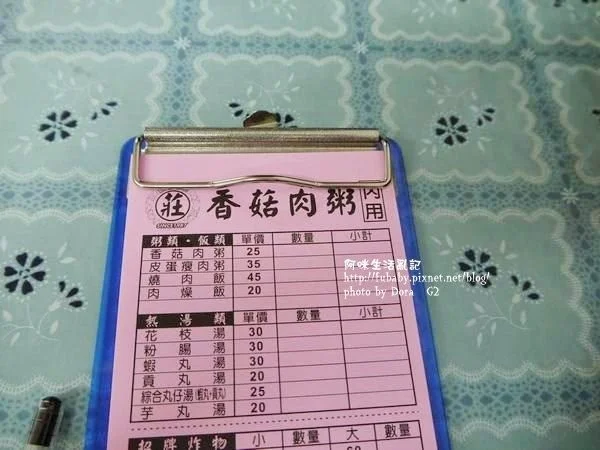 莊 香菇肉粥 內用
SINCE1997
粥類・飯類 單價 數量 小計
香菇肉粥 25
皮蛋瘦肉粥 35
燒肉飯 45
肉燥飯 20
熱湯類 單價 數量 小計
花枝湯 30
粉腸湯 30
蝦丸湯 30
貢丸湯 20
綜合丸仔湯(蝦丸+貢丸) 25
芋丸湯 20
招牌炸物 小 數量 大 數量
阿咪生活亂記
http://fubaby.pixnet.net/blog/
photo by Dora G2